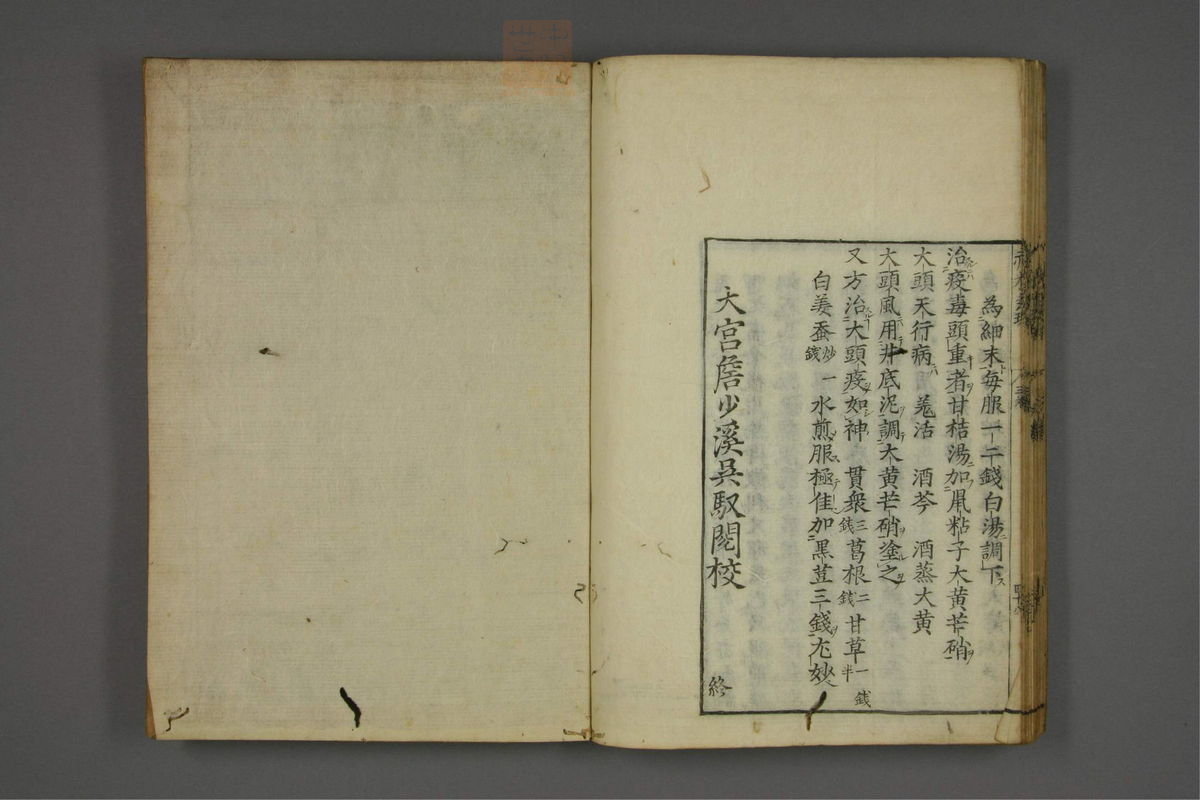 為細末每服一二錢白湯調下
治疫毒頭重者甘桔湯加鼠粘子大黄芒硝
大頭天行病 羗活 酒芩 酒蒸大黄
大頭風用井底泥調大黄芒硝塗之
又方治大頭疫如神 貫衆三錢 葛根二錢 甘草一錢半
白姜蚕炒一錢 水煎服極佳加黒荳三錢尤妙
大宫詹少溪吳馭閱校 終